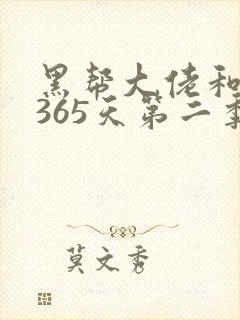 黑帮大佬和
365天第二季
莫文秀